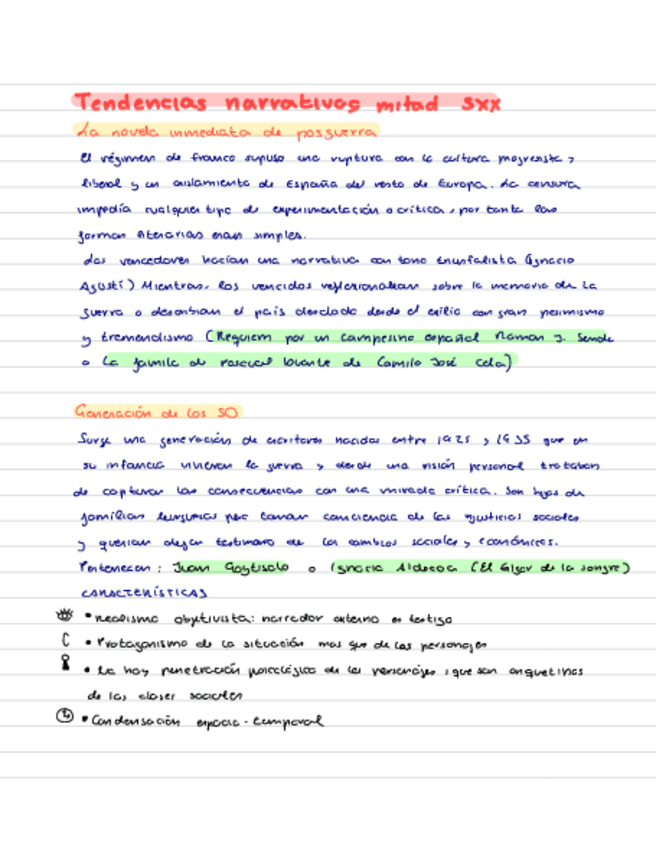 Tendencias narrativas mitad SXX
La novela inmediata de posguerra
El régimen de Franco supuso una ruptura con la cultura progresista y
liberal y un aislamiento de España del resto de Europa. La censura
impedía cualquier tipo de experimentación o crítica, por tanto las
formas literarias eran simples.
Los vencedores hacían una narrativa con tono triunfalista (Ignacio
Agustí) Mientras, los vencidos reflexionaban sobre la memoria de la
guerra o describían el país desolado desde el exilio con gran pesimismo
y tremendismo (Requiem por un campesino español Ramon J. Sender
o La familia de Pascual Duarte de Camilo José Cela)
Generación de los 50
Surge una generación de escritores nacidos entre 1925 y 1935 que en
su infancia vivieron la guerra y desde una visión personal trataban
de capturar las consecuencias con una mirada crítica. Son hijos de
familias burguesas pero toman conciencia de las injusticias sociales
y querían dejar testimonio de los cambios sociales y económicos.
Pertenecen: Juan Goytisolo o Ignacio Aldecoa (El fulgor de la sangre)
CARACTERÍSTICAS
• Realismo objetivista: narrador externo es testigo
• Protagonismo de la situación mas que de los personajes
• hay penetración psicológica de los personajes, que son arquetipos
de las clases sociales
• Condensación espacio-temporal